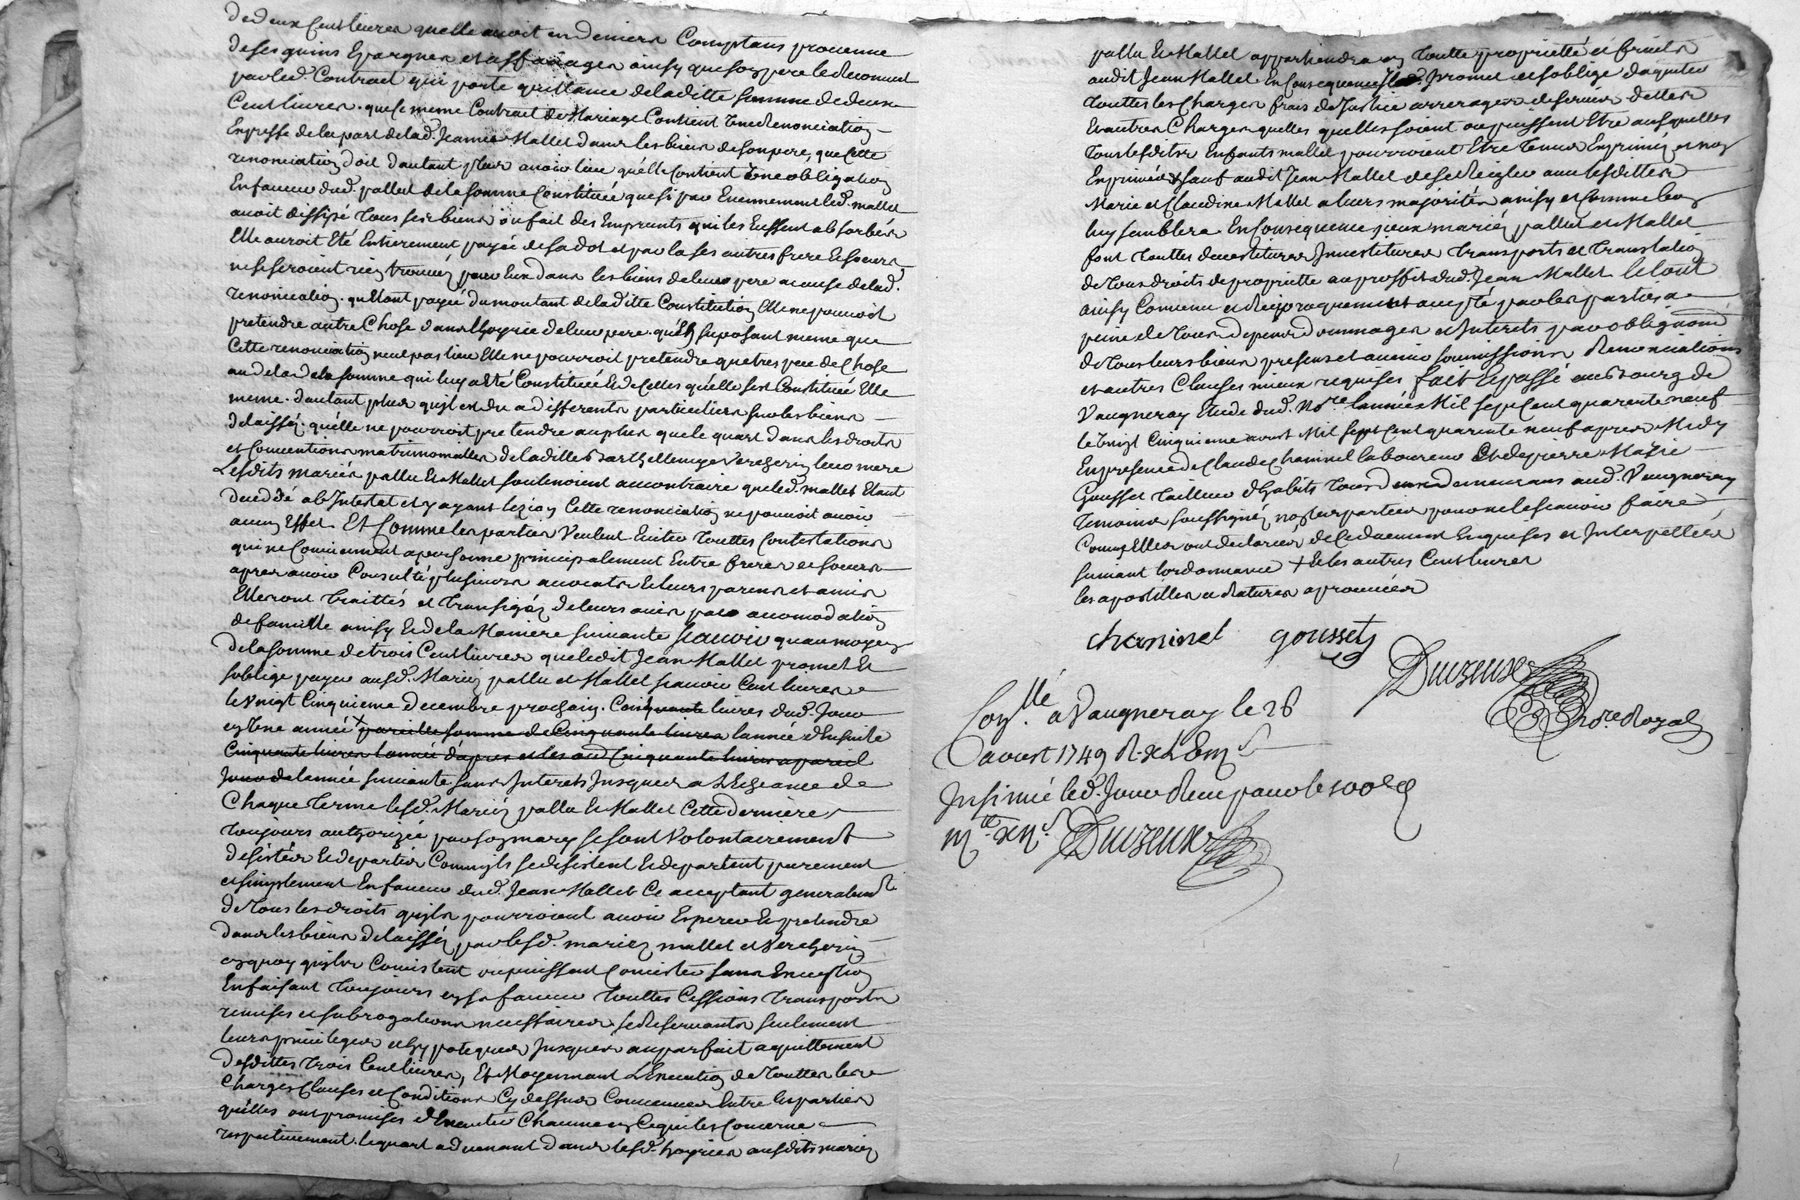 de deux Cent livres quelle avoit en deniers Comptans provenue
de ses gains Epargnes et affanages ainsy que son pere le Reconnut
par led. Contract qui porte quittance de laditte somme de deux
Cent livres. que le meme Contract de Mariage Contient une Renonciation
Expresse de la part de lad. Jeanne Mallet dans les biens de son pere, que Cette
renonciation doit d'autant plus avoir lieu qu'elle Contient une obligation
En faveur dud. pallu de la somme Constituée que si par Evennement led. mallet
avoit dissipé tous ses biens ou fait des Emprunts qui les Eussent absorbés
Elle auroit Eté Entierement payée de sa dot et par la ses autres frere et soeurs
ne seroient rien trouvés pour Eux dans les biens de leur pere a cause de lad.
renonciation. qu'Etant payée du montant de laditte Constitution Elle ne pouvoit
pretendre autre Chose dans l'hoyrie de leur pere. qu'En suposant meme que
Cette renonciation n'eut pas lieu Elle ne pourroit pretendre que tres peu de Chose
au dela de la somme qui luy a Eté Constituée et de Celles qu'elle s'est Constituée Elle
meme. d'autant plus qu'il est du a differents particuliers sur les biens
delaissés. qu'elle ne pourroit pretendre au plus que le quart dans les droits
et Conventions matrimonialles de laditte Barthellemye Vercherin leur mere
Lesdits mariés pallu et Mallet soutenoient au contraire que led. mallet Etant
decedé ab Intestat et y ayant lezion Cette renonciation ne pouvoit avoir
aucun Effet. Et Comme les parties Veulent Eviter touttes Contestations
qui ne Conviennent a personne principalement Entre freres et soeurs
apres avoir Consulté plusieurs avocats et leurs parens et amis
Elles ont traittés et transigés de leurs avis par acomodation
de famille ainsy et de la Maniere suivante scavoir qu'au moyen
de la somme de trois Cent livres que ledit Jean Mallet promet et
s'oblige payer ausd. Mariés pallu et Mallet scavoir Cent livres
le vingt Cinquieme decembre prochain. Cinquante livres dud. Jour
en une année + pareille somme de Cinquante livres l'année d'Ensuite
Cinquante livres l'année d'apres et les aud. Cinquante livres a pareil
Jour de l'année suivante sans Interets Jusques a L'Echeance de
Chaque terme lesd. Mariés pallu et Mallet Cette derniere
toujours authorizée par son mary se sont Volontairement
desistés et departis Comm'ils se desistent et departent purement
et simplement En faveur dud. Jean Mallet Ce acceptant generalemt
de tous les droits qu'ils pourroient avoir Esperer et pretendre
dans les biens delaissés par lesd. mariés mallet et Vercherin
en quoy qu'ils Consistent ou puissent Consister sans Exception
En faisant toujours en sa faveur touttes Cessions transports
remises et subrogations necessaires se reservants seulement
leurs privileges et hypoteques Jusques au parfait aquittement
desdittes trois Cent livres, Et Moyennant L'Execution de touttes les
Charges Clauses et Conditions Cy dessus Convenues Entre les parties
qu'elles ont promises d'Executer Chacune en Ce qui les Concerne
respectivement. le quart advenant dans lesd. hoyries ausdits mariés
pallu et Mallet appartiendra en toutte proprieté et fruits
audit Jean Mallet. En Consequence Il promet et s'oblige d'aquiter
touttes les Charges frais de Justice arrerages de servis dettes
et autres Charges quelles quelles soient ou puissent Etre ausquelles
tous lesdits Enfants mallet pourroient Etre tenus Exprimés et non
Exprimés sauf audit Jean Mallet de se Reigler avec lesdittes
Marie et Claudine Mallet a leurs majorités ainsy et Comme bon
luy semblera. En Consequence iceux mariés pallu et Mallet
font touttes devestitures Investitures transports et translation
de tous droits de proprieté au proffit dud. Jean Mallet. le tout
ainsy Convenu et Reciproquement accepté par les parties a
peine de tous depens dommages et Interets par obligaon
de tous leurs biens presens et avenir soumissions Renonciations
et autres Clauses mieux requises fait et passé au Bourg de
Vaugneray Etude dud. Nore. l'année Mil sept Cent quarente neuf
le vingt Cinquieme aoust Mil sept Cent quarente neuf apres Midy
En presence de Claude Chaminel laboureur Et de pierre Marie
Gousset tailleur d'habits tous deux demeurans aud. Vaugneray
temoins soussignés non les parties pour ne le scavoir faire
Comm'Elles ont declarées de Ce duement Enquises et Interpellées
suivant l'ordonnance + et les autres Cent livres
les apostilles et Ratures aprouvées
chaminel gousset
Duizeux
nore. Royal
Conllé a Vaugneray le 26
aoust 1749
Insinué led. Jour
Duizeux